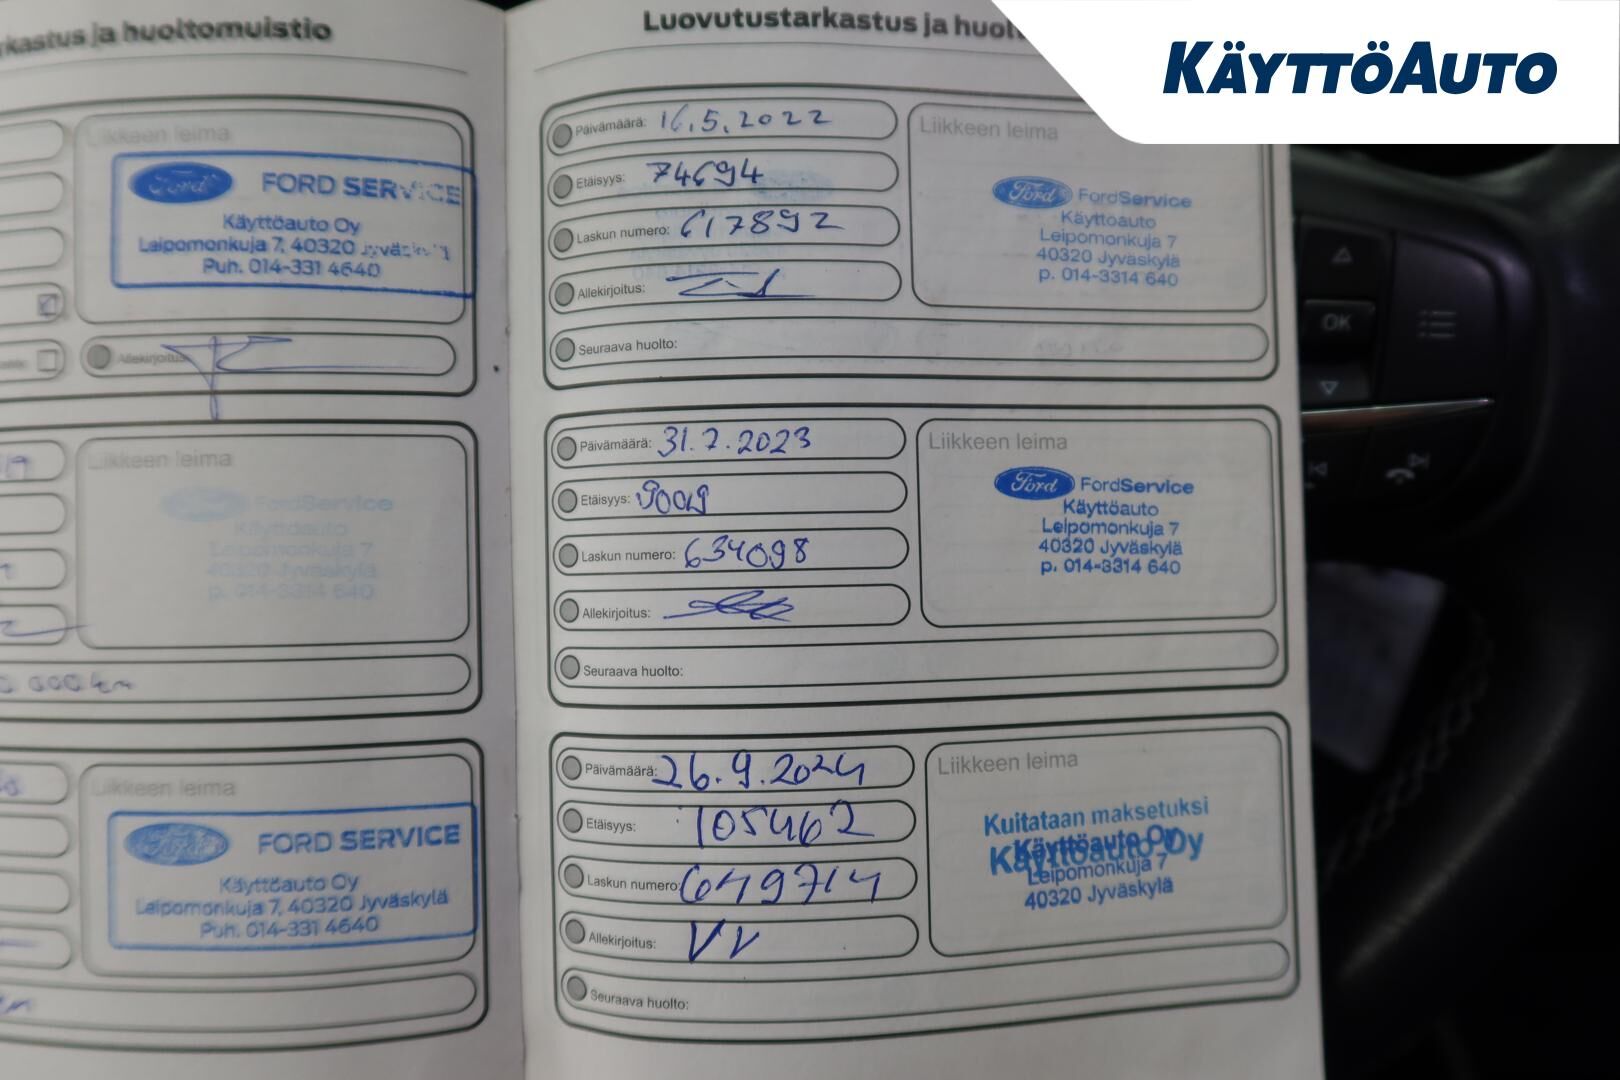 rkastus ja huoltomuistio
Liikkeen leima
Ford
FORD SERVICE
Käyttöauto Oy
Leipomonkuja 7, 40320
Puh. 014-331 4640
Allekirjoitus:
Liikkeen leima
FordService
Käyttöauto
Leipomonkuja 7
40320 Jyväskylä
p. 014-3314 640
000 km
Liikkeen leima
Ford
FORD SERVICE
Käyttöauto Oy
Leipomonkuja 7, 40320 Jyväskylä
Puh. 014-331 4640
Luovutustarkastus ja
Päivämäärä: 16.5.2022
Etäisyys: 74694
Laskun numero: 617892
Allekirjoitus:
Seuraava huolto:
Liikkeen leima
Ford FordService
Käyttöauto
Leipomonkuja 7
40320 Jyväskylä
p. 014-3314 640
Päivämäärä: 31.7.2023
Etäisyys:
Laskun numero: 634098
Allekirjoitus:
Seuraava huolto:
Liikkeen leima
Ford FordService
Käyttöauto
Leipomonkuja 7
40320 Jyväskylä
p. 014-3314 640
Päivämäärä: 26.9.2024
Etäisyys: 105462
Laskun numero: 649714
Allekirjoitus: VV
Seuraava huolto:
Liikkeen leima
Kuitataan maksetuksi
Käyttöauto Oy
Käyttöauto Oy
Leipomonkuja 7
40320 Jyväskylä
KÄYTTÖAUTO
OK